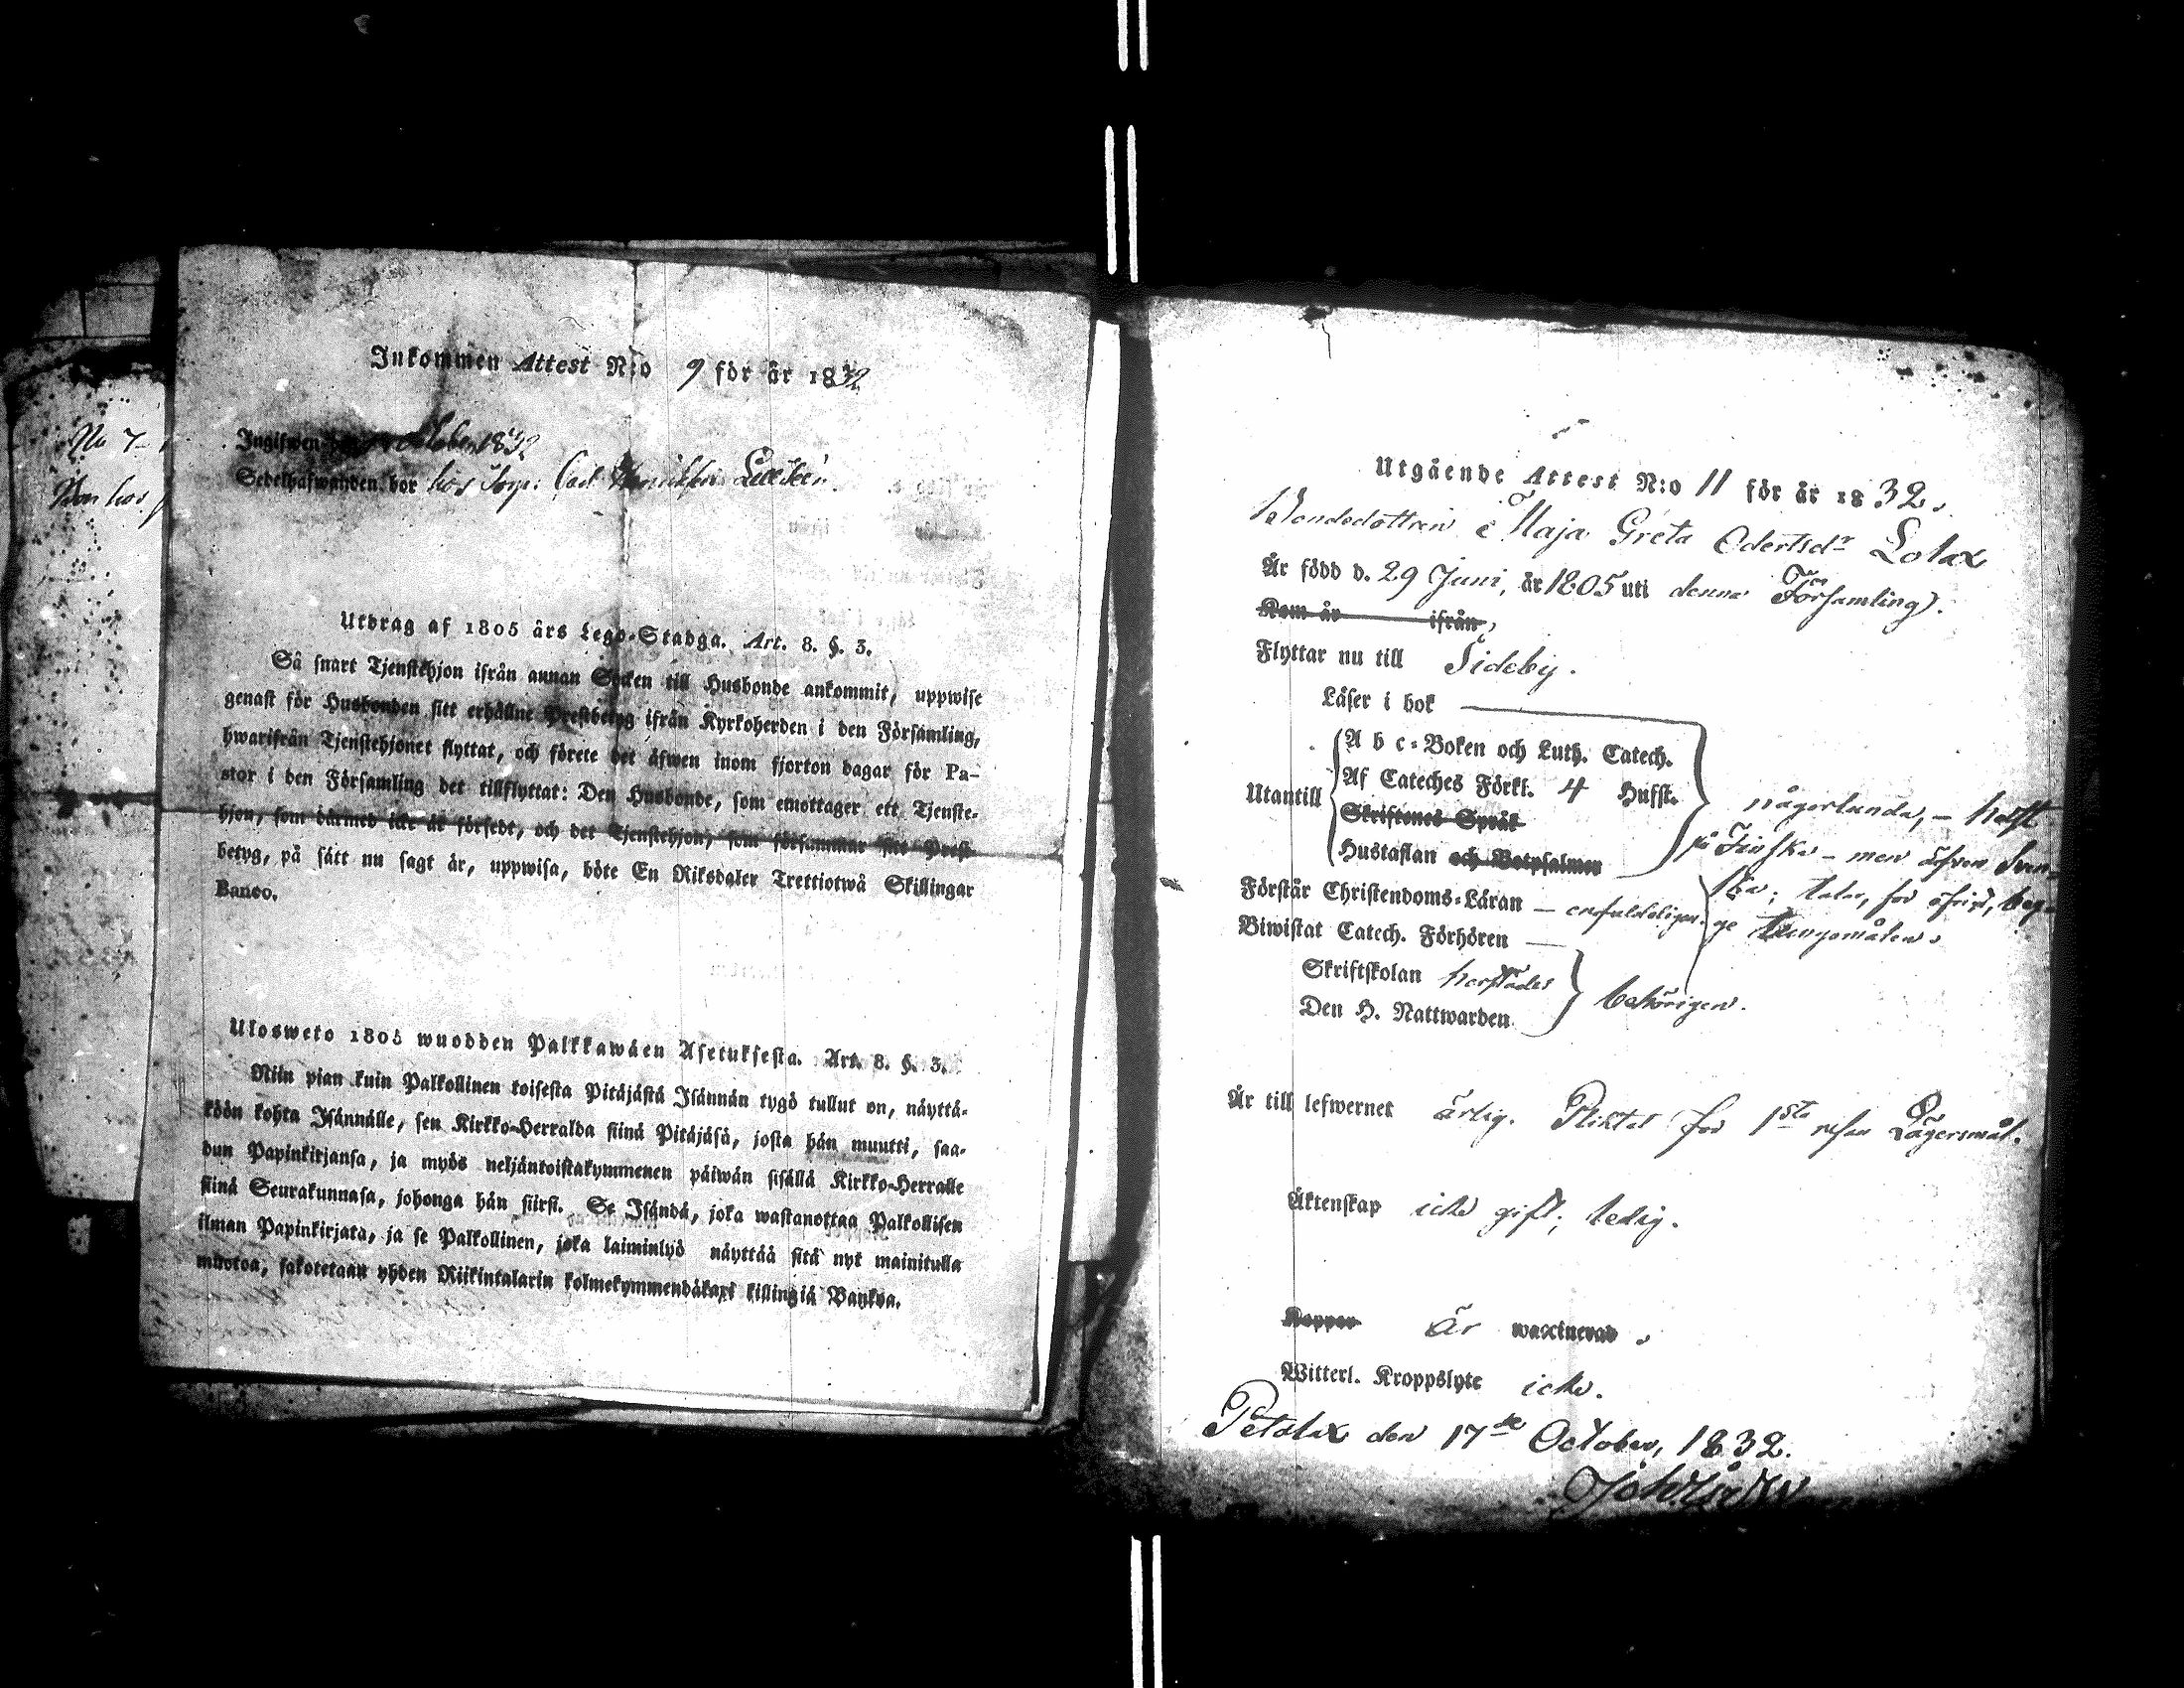 No 7
Bor hos
Inkommen Attest N:o 9 för år 1832
Ingifwen October 1832
Sedelhafwanden bor hos Torp. Carl Henriksson
Utdrag af 1805 års Lego-Stadga. Art. 8. §. 3.
Så snart Tjenstehjon ifrån annan Socken till Husbonde ankommit, uppwise
genast för Husbonden sitt erhållne Prestbetyg ifrån Kyrkoherden i den Församling,
hwarifrån Tjenstehjonet flyttat, och förete det äfwen inom fjorton dagar för Pa-
stor i den Församling det tillflyttat: Den Husbonde, som emottager ett Tjenste-
hjon, som därmed icke är försedt, och det Tjenstehjon, som försummar sitt Prest-
betyg, på sätt nu sagt är, uppwisa, böte En Riksdaler Trettiotwå Skillingar
Banco.
Ulosweto 1805 wuodden Palkkawäen Asetuksesta. Art. 8. §. 3.
Niin pian kuin Palkollinen toisesta Pitäjästä Isännän tygö tullut on, näyttä-
köön kohta Isännälle, sen Kirkko-Herralda siinä Pitäjäsä, josta hän muutti, saa-
dun Papinkirjansa, ja myös neljäntoistakymmenen päiwän sisällä Kirkko-Herralle
siinä Seurakunnasa, johonga hän siirsi. Se Isändä, joka wastanottaa Palkollisen
ilman Papinkirjata, ja se Palkollinen, joka laiminlyö näyttää sitä nyt mainitulla
muotoa, sakotetaan yhden Riikintalarin kolmekymmendäkaxi killingiä Bankoa.
Utgående Attest N:o 11 för år 1832.
Bondedottren Maja Greta Odertsdr Lolax
Är född d. 29 Juni, år 1805 uti denna Församling.
Kom år ifrån,
Flyttar nu till Sideby.
Läser i bok
A b c-Boken och Luth. Catech.
Utantill Af Cateches Förkl. 4 Hufst. någorlunda, – helst
Skriftenes Språk
Hustaflan och Botpsalmen på Finska – men äfven Sven-
ska; talar, för öfrigt, beg-
Förstår Christendoms-Läran – enfaldeligen. ge tungomålen.
Biwistat Catech. Förhören
Skriftskolan härstädes
Den H. Nattwarden behörigen.
Är till lefwernet ärlig. Pliktat för 1sta resan Lägersmål.
Äktenskap icke gift; ledig.
Koppor är waccinerad.
Witterl. Kroppslyte icke.
Petalax den 17de October, 1832.